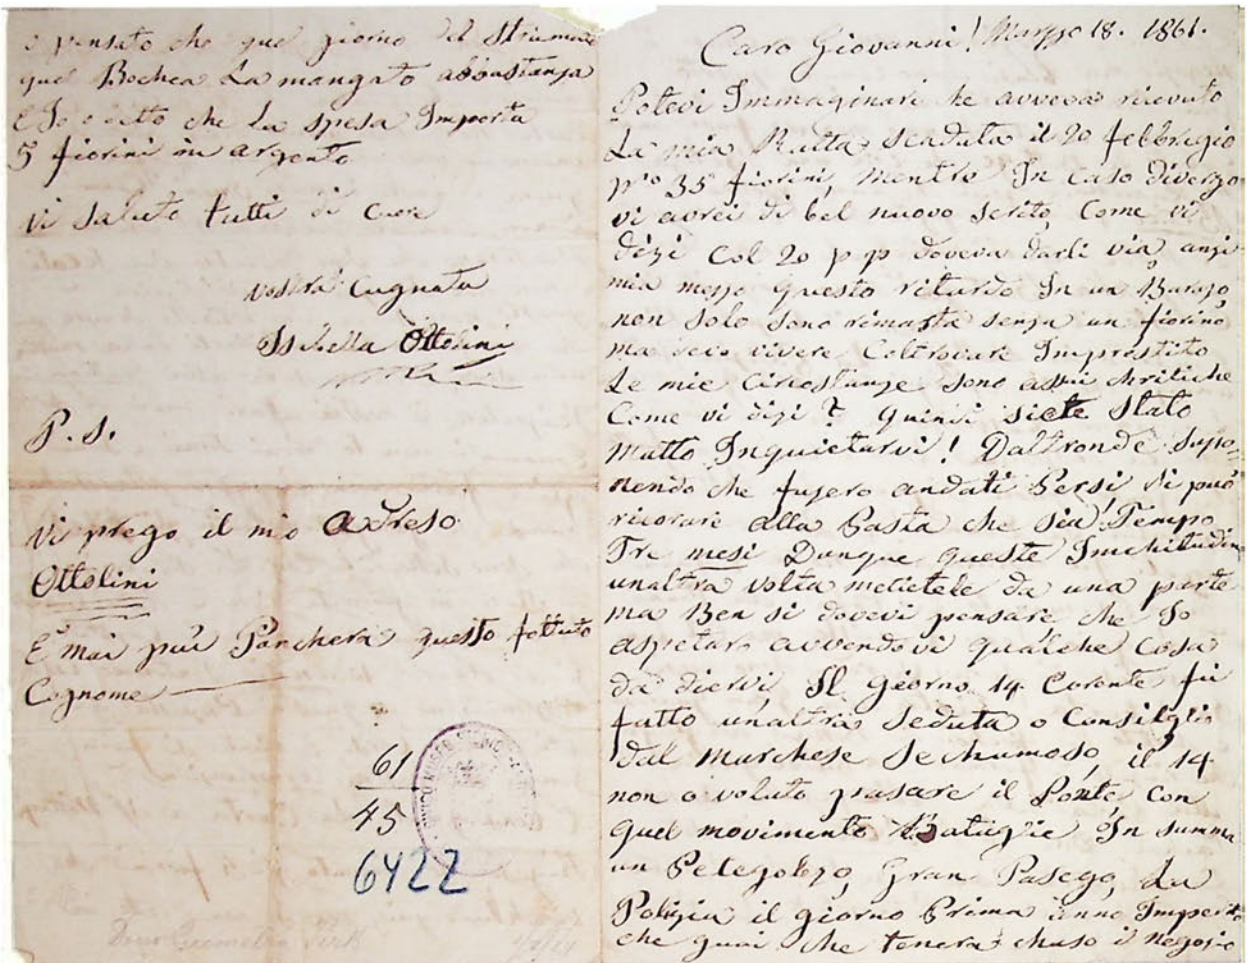 e pensato che quel giorno del
quel Bechea La mangato abbastanza
E Io o ditto che La spesa Importa
5 fiorini in argento
Vi saluto tutti di Cuore
vostra Cugnata
Isabella Ottolini
P. S.
Vi prego il mio Adreso
Ottolini
E mai più Panchera questo fottuto
Cognome
61
45
6422
Caro Giovanni! Marzzo 18. 1861.
Potevi Immaginari che avveva ricevuto
La mia Ratta Scaduta il 20 febbragio
35 fiorini, mentre In Caso diverzo
vi avrei di bel nuovo Scrito, Come vi
dizi Col 20 p p doveva darli via, anzi
mia messo questo ritardo In un
non Solo Sono rimasta senza un fiorino
ma devo vivere Col trovare Imprestito
Le mie Circostanze Sono assai chritiche
Come vi dizi? quindi siete Stato
matto Inquietarvi! Daltronde Supo-
nendo che fusero andati Persi Si può
ricorare alla Posta che sia Tempo
Tre mesi Dunque queste Inichitudin
unaltra volta metietele da una parte
ma Ben si dovevi pensare che Io
aspetaro avvendovi qualche Cosa
da diervi Il giorno 14 Corente fù
fatto unaltra Seduta o Consilglio
dal Marchese il 14
non o voluto pasare il Ponte Con
quel movimento In Summa
un Petegolezo, Gran Pasego, La
Polizia il giorno Prima anno
che guai che tenera chiuso il negozio